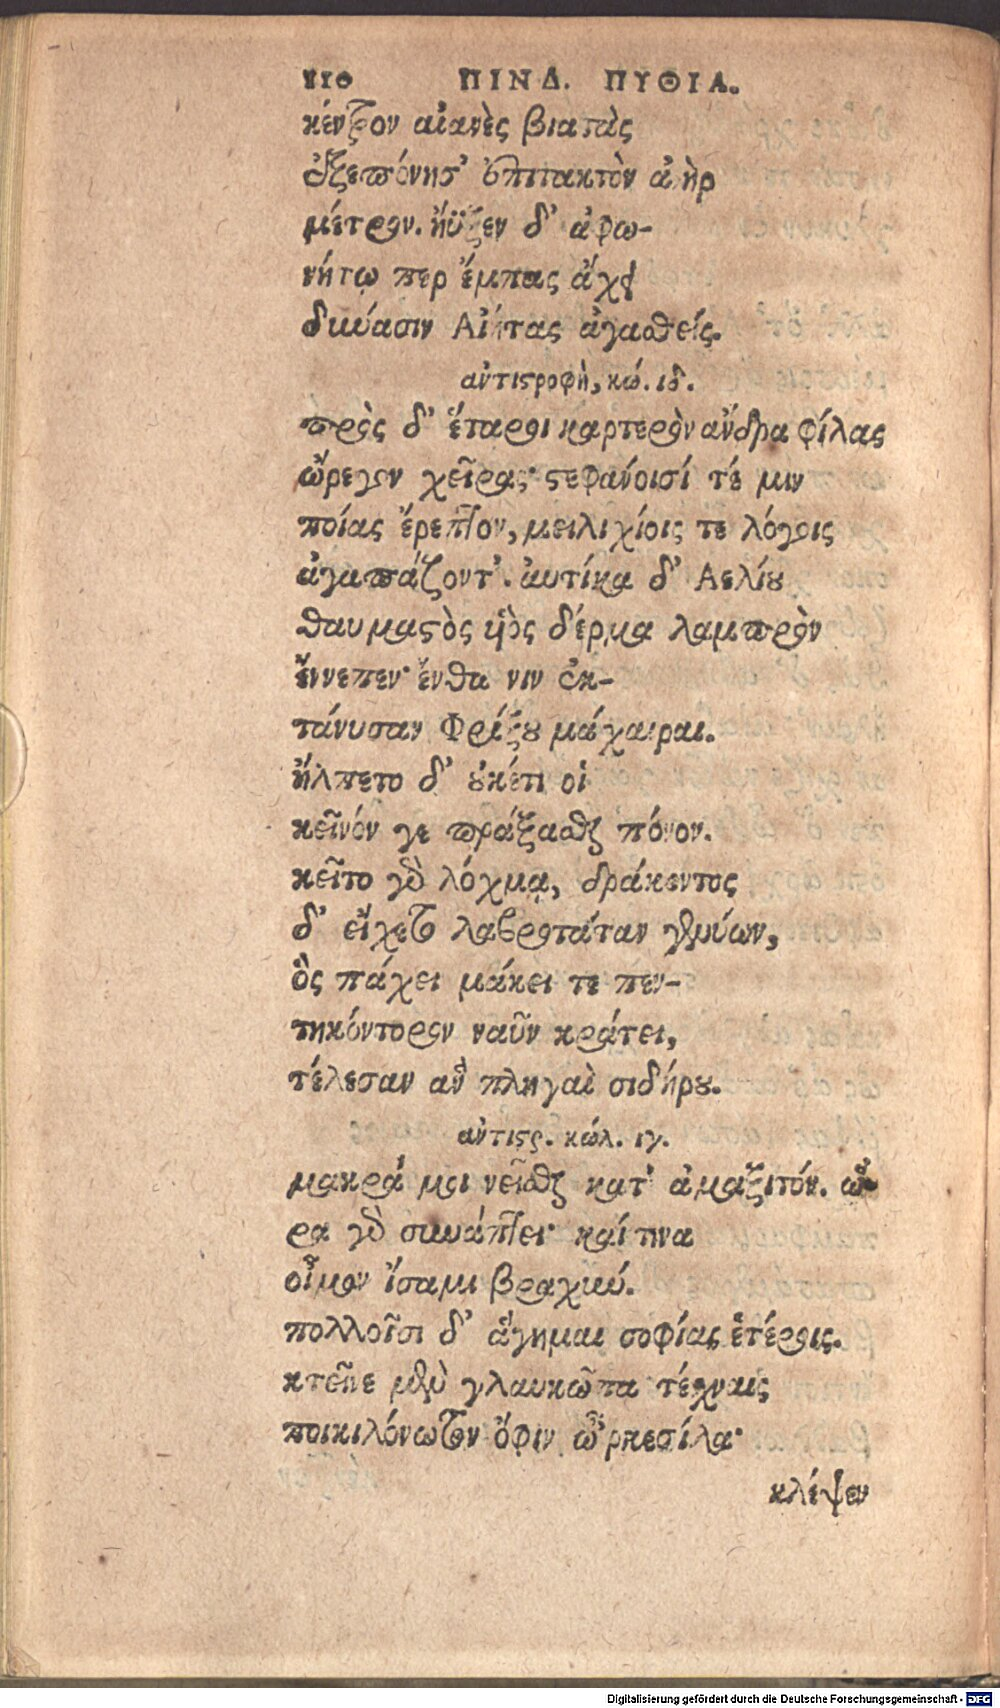 110 ΠΙΝΔ. ΠΥΘΙΑ.
κέντρον αἰανὲς βιατὰς
ἐξεπόνησ' ἐπιτακτὸν ἀνὴρ
μέτρον. ἤϋξεν δ' ἀφω-
νήτῳ περ ἔμπας ἄχει
δύνασιν Αἰήτας ἀγασθείς.
ἀντιστροφὴ, κώ. ιδ.
πρὸς δ' ἕταροι καρτερὸν ἄνδρα φίλας
ὤρεγον χεῖρας· στεφάνοισί τέ μιν
ποίας ἔρεπτον, μειλιχίοις τε λόγοις
ἀγαπάζοντ'. αὐτίκα δ' Αελίου
θαυμαστὸς ὑιὸς δέρμα λαμπρὸν
ἔννεπεν· ἔνθα νιν ἐκ-
τάνυσαν Φρίξου μάχαιραι.
ἤλπετο δ' οὐκέτι οἱ
κεῖνόν γε πράξασθαι πόνον.
κεῖτο γὰρ λόχμᾳ, δράκοντος
δ' εἴχετο λαβροτάταν γενύων,
ὃς πάχει μάκει τε πεν-
τηκόντορον ναῦν κράτει,
τέλεσαν ἂν πληγαὶ σιδήρου.
ἀντιστρ. κώλ. ιγ.
μακρά μοι νεῖσθαι κατ' ἀμαξιτόν. ὥ-
ρα γὰρ συνάπτει· καί τινα
οἶμον ἴσαμι βραχύν.
πολλοῖσι δ' ἅγημαι σοφίας ἑτέροις.
κτεῖνε μὲν γλαυκῶπα τέχναις
ποικιλόνωτον ὄφιν ὦ ῤκεσίλα·
κλέψεν
Digitalisierung gefördert durch die Deutsche Forschungsgemeinschaft - DFG